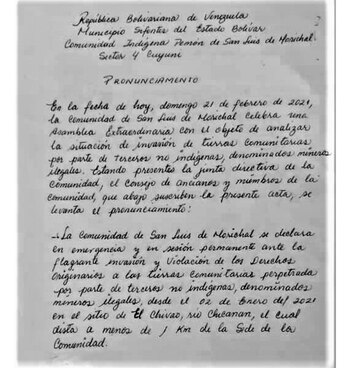 República Bolivariana de Venezuela
Municipio Sifontes del Estado Bolívar
Comunidad Indígena Pemón de San Luis de Morichal.
Sector 4 Cuyuni
PRONUNCIAMIENTO
En la fecha de hoy, domingo 21 de febrero de 2021,
la Comunidad de San Luis de Morichal celebra una
Asamblea Extraordinaria con el objeto de analizar
la situación de invasión de tierras comunitarias,
por parte de terceros no indígenas, denominados mineros
ilegales. Estando presentes la junta directiva de la
Comunidad, el consejo de ancianos y miembros de la
comunidad, que abajo suscriben la presente acta, se
levanta el pronunciamiento:
- La Comunidad de San Luis de Morichal se declara
en emergencia y en sesión permanente ante la
flagrante invasión y Violación de los Derechos
Originarios a las tierras comunitarias perpetrada
por parte de terceros no indígenas, denominados
mineros ilegales, desde el 02 de Enero del 2021
en el sitio de El Chivao, río Chicanan, el cual
dista a menos de 1 Km de la Sede de la
Comunidad.